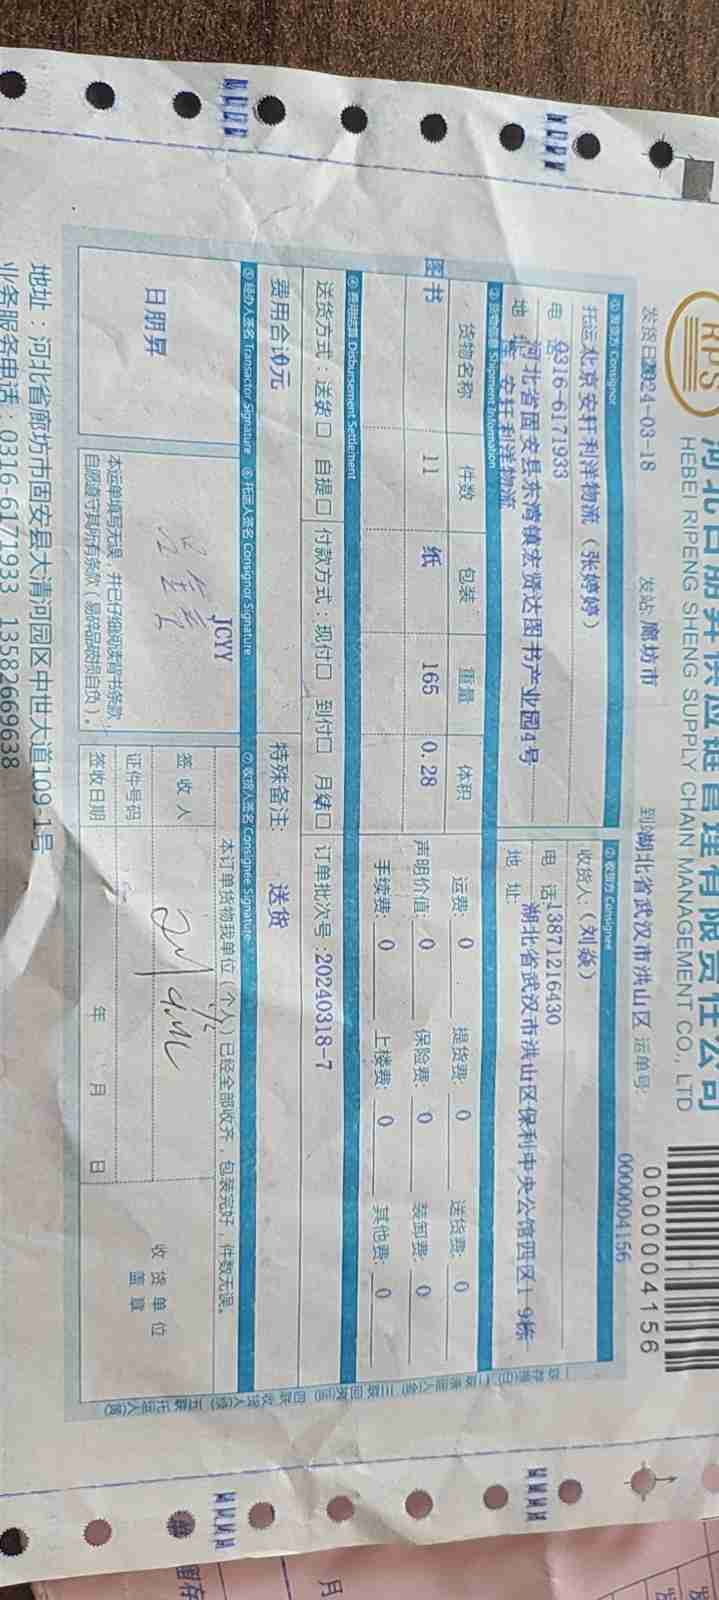 RPS
河北日朋昇供应链管理有限责任公司
HEBEI RIPENG SHENG SUPPLY CHAIN MANAGEMENT CO., LTD
0000004156
0000004156
发货日期2024-03-18 发站:廊坊市 到站湖北省武汉市洪山区 运单号:
① 发货方 Consignor
② 收货方 Consignee
托运北京安轩利洋物流（张婷婷）
收货人:（刘焱）
电 0316-6171933
电 话13871216430
地 河北省固安县东湾镇宏贤达图书产业园4号
安轩利洋物流
地 址: 湖北省武汉市洪山区保利中央公馆四区19栋
③ 货物信息 Shipment Information
货物名称 件数 包装 重量 体积
运费: 0 提货费: 0 送货费: 0
图书 11 纸 165 0.28
声明价值: 0 保险费: 0 装卸费: 0
手续费: 0 上楼费: 0 其他费: 0
④ 费用结算 Disbursement Settlement
送货方式：送货□ 自提□ 付款方式：现付□ 到付□ 月结□ 订单批次号:20240318-7
费用合计0元 特殊备注: 送货
⑤ 经办人签名 Transactor Signature ⑥ 托运人签名 Consignor Signature ⑦ 收货人签名 Consignee Signature
日朋昇
JCYY
本运单填写无误，并已仔细阅读背书条款，
自愿遵守其所有条款（易碎品破损自负）。
本订单货物我单位（个人）已经全部收齐，包装完好，件数无误。
签 收 人
证件号码
签收日期 年 月 日
收货单位
盖章
地址：河北省廊坊市固安县大清河园区中世大道109-1号
业务服务电话：0316-6171933 13582669638
留存
月